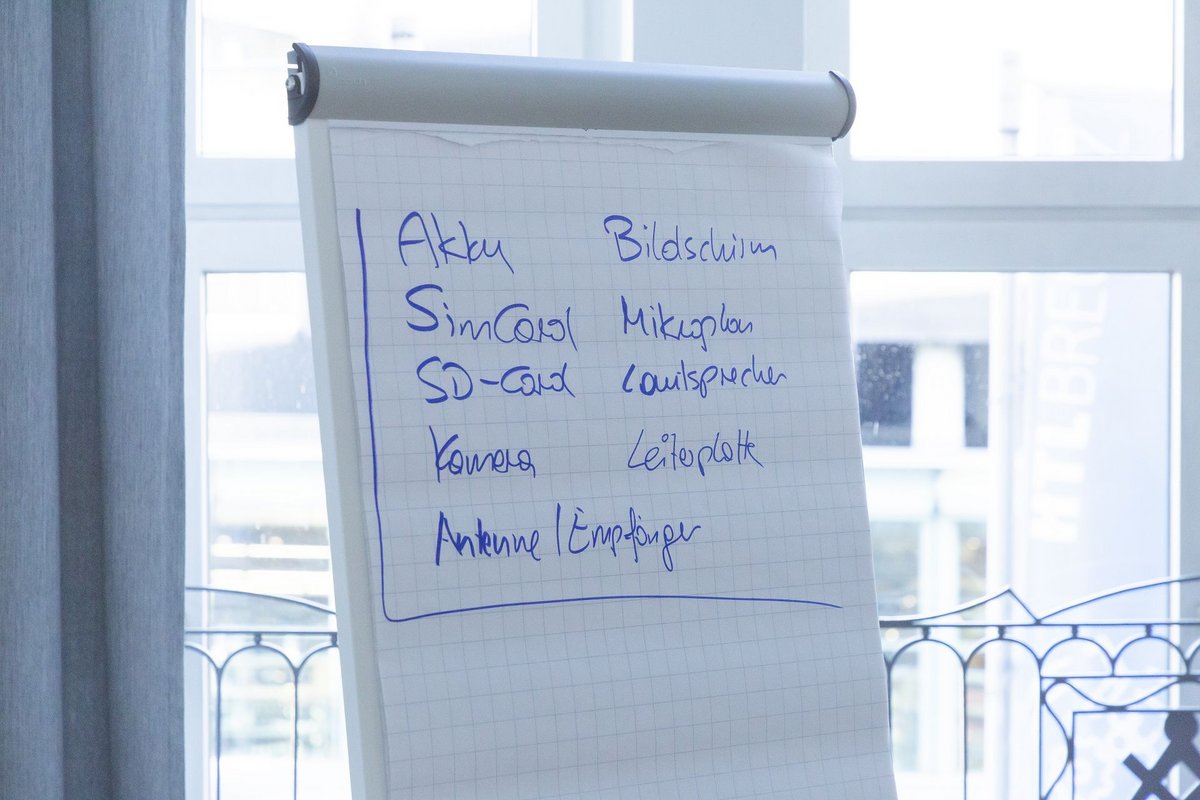 Akku Bildschirm
SimCard Mikrophon
SD-Card Lautsprecher
Kamera Leiterplatte
Antenne/Empfänger